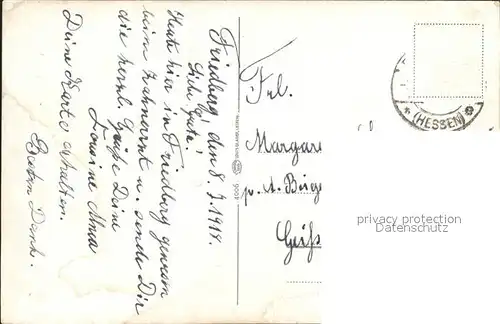 Friedberg, den 8.7.1914.
Liebe Grete!
Heute hier in Friedberg gewesen
beim Zahnarzt u. sende Dir
die herzl. Grüße Deine
Cousine Anna
Deine Karte erhalten.
Besten Dank.
Frl.
Margare
p. A.
Geiß
(HESSEN)
privacy protection
Datenschutz